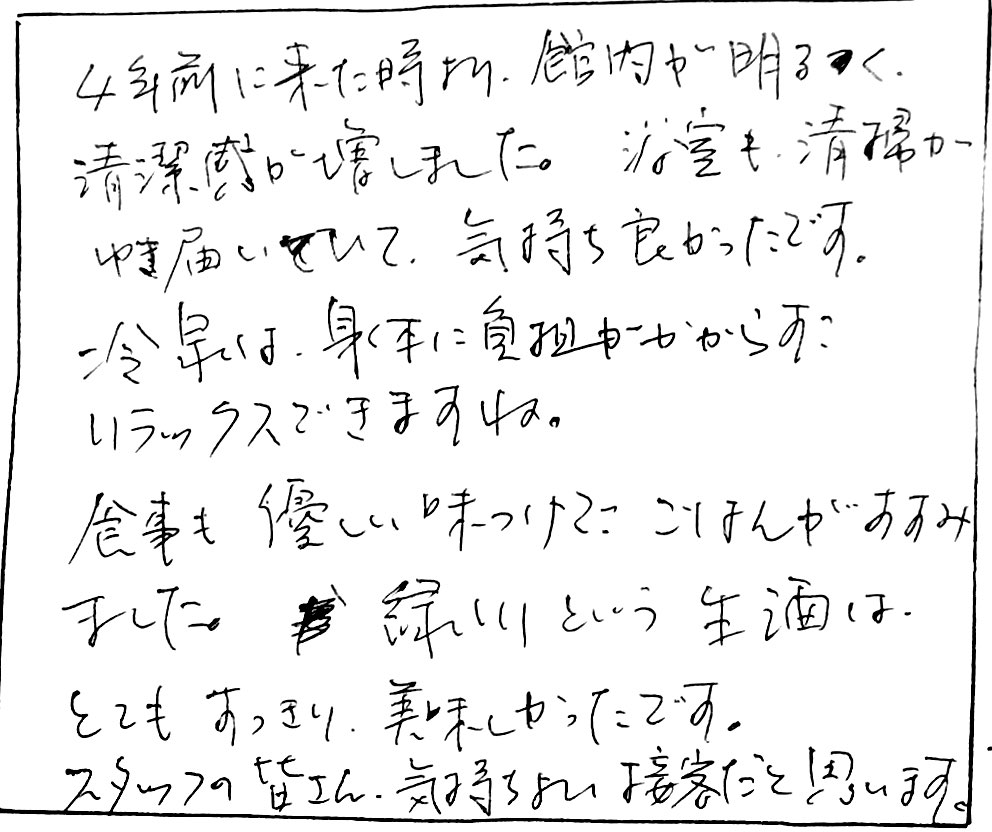 4年前に来た時より、館内が明るく、
清潔感が増しました。 浴室も、清掃が
ゆき届いていて、気持ち良かったです。
冷泉は、身体に負担がかからずに
リラックスできますね。
食事も 優しい味つけで ごはんがすすみ
ました。 緑川という 生酒は、
とても すっきり、美味しかったです。
スタッフの 皆さん、気持ちよい 接客だと思います。